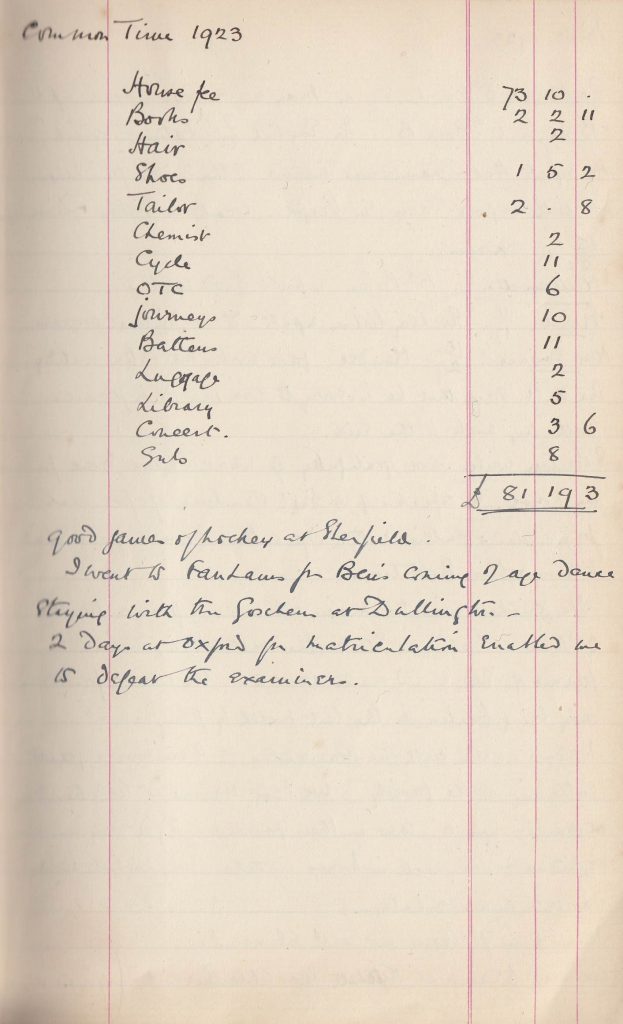 Common Time 1923
House fee 73 10 .
Books 2 2 11
Hair 2
Shoes 1 5 2
Tailor 2 . 8
Chemist 2
Cycle 11
OTC 6
Journeys 10
Battens 11
Luggage 2
Library 5
Concert. 3 6
Subs 8
£ 81 19 3
good games of hockey at Sherfield.
I went to Fanhams for Ben's coming of age dance
Staying with the Goschens at Dullingham -
2 Days at Oxford for matriculation Enabled me
to defeat the examiners.